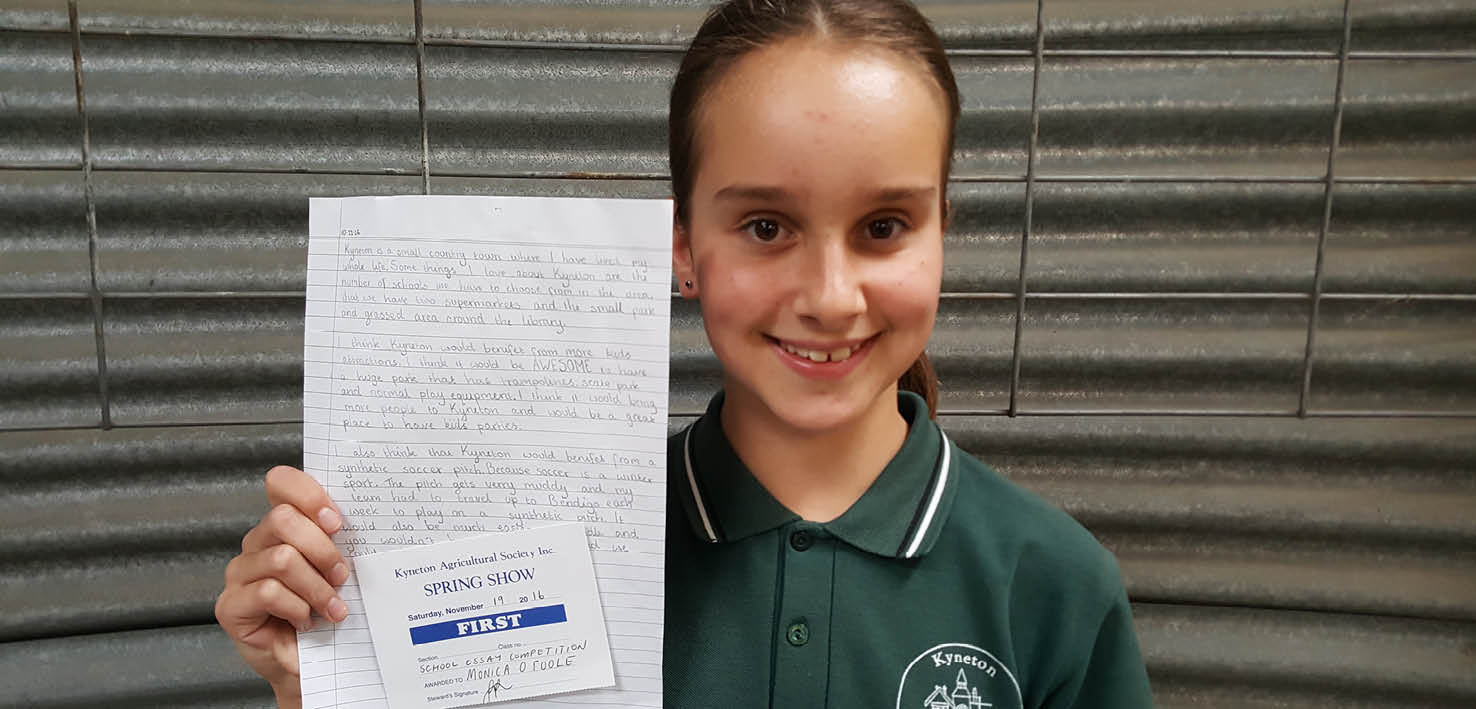 10-11-16
Kyneton is a small country town where I have lived my
whole life. Some things I love about Kyneton are the
number of schools we have to choose from in the area,
that we have two supermarkets and the small park
and grassed area around the library.
I think Kyneton would benifet from more kids
attractions. I think it would be AWESOME to have
a huge park that has trampolines, scate park
and normal play equipment. I think it would bring
more people to Kyneton and would be a great
place to have kids parties.
I also think that Kyneton would benifet from a
synthetic soccer pitch. Because soccer is a winter
sport. The pitch gets verry muddy and my
team had to travel up to Bendigo each
week to play on a synthetic pitch. It
would also be much and
you wouldn't use
could
Kyneton Agricultural Society Inc.
SPRING SHOW
Saturday, November 19 2016
FIRST
Section Class no.
SCHOOL ESSAY COMPETITION
AWARDED TO MONICA O TOOLE
Steward's Signature
Kyneton